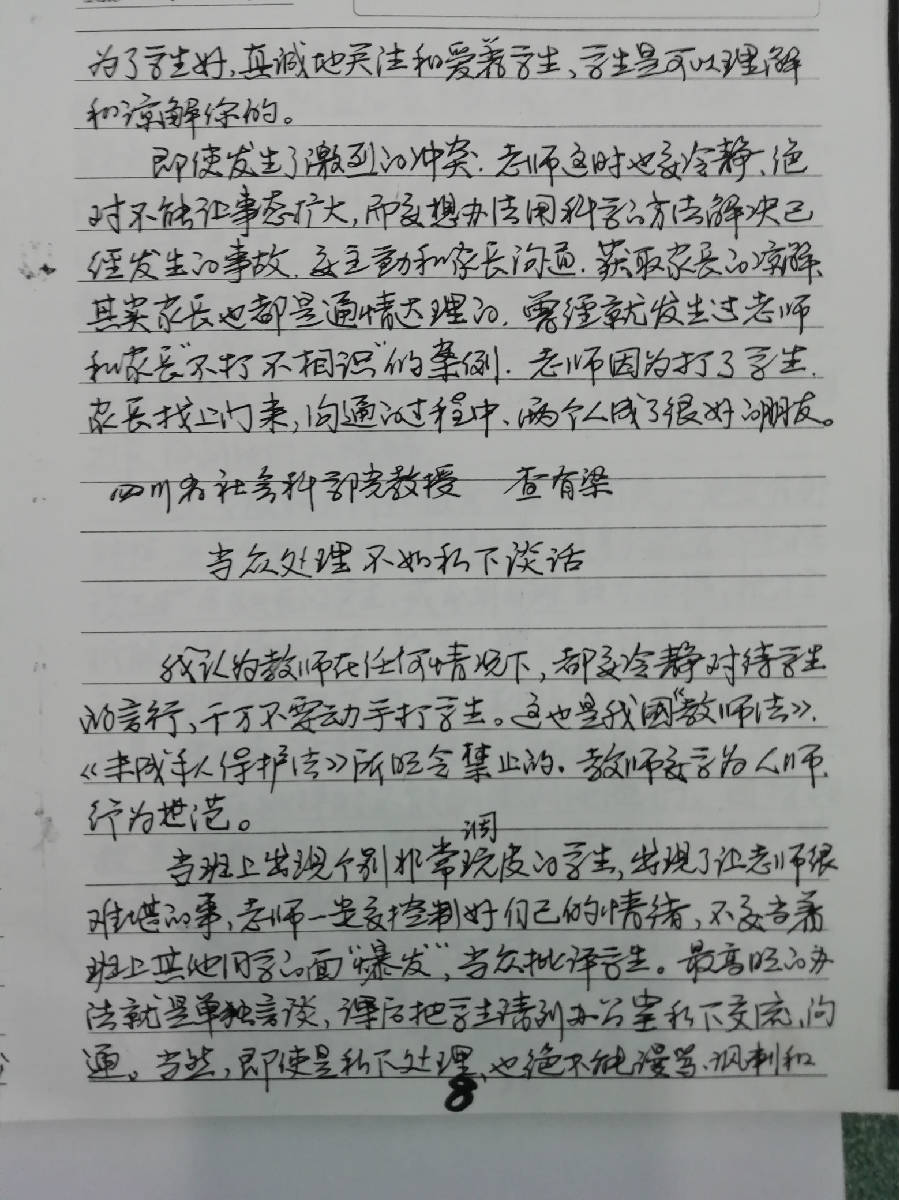 为了学生好,真诚地关注和爱着学生、学生是可以理解
和谅解你的。
即使发生了激烈的冲突.老师这时也要冷静、绝
对不能让事态扩大,而要想办法用科学的方法解决已
经发生的事故.要主动和家长沟通.获取家长的谅解.
其实家长也都是通情达理的.曾经就发生过老师
和家长"不打不相识"的案例.老师因为打了学生.
家长找上门来,沟通的过程中、两个人成了很好的朋友。
四川省社会科学院教授 查有梁
当众处理不如私下谈话
我认为教师在任何情况下,都要冷静对待学生
的言行,千万不要动手打学生。这也是我国《教师法》.
《未成年人保护法》所明令禁止的.教师要学为人师.
行为世范。
当班上出现个别非常调皮的学生,出现了让老师很
难堪的事,老师一定要控制好自己的情绪,不要当着
班上其他同学的面"爆发",当众批评学生。最高明的办
法就是单独言谈,课后把学生请到办公室私下交流,沟
通。当然,即使是私下处理,也绝不能谩骂.讽刺和
8